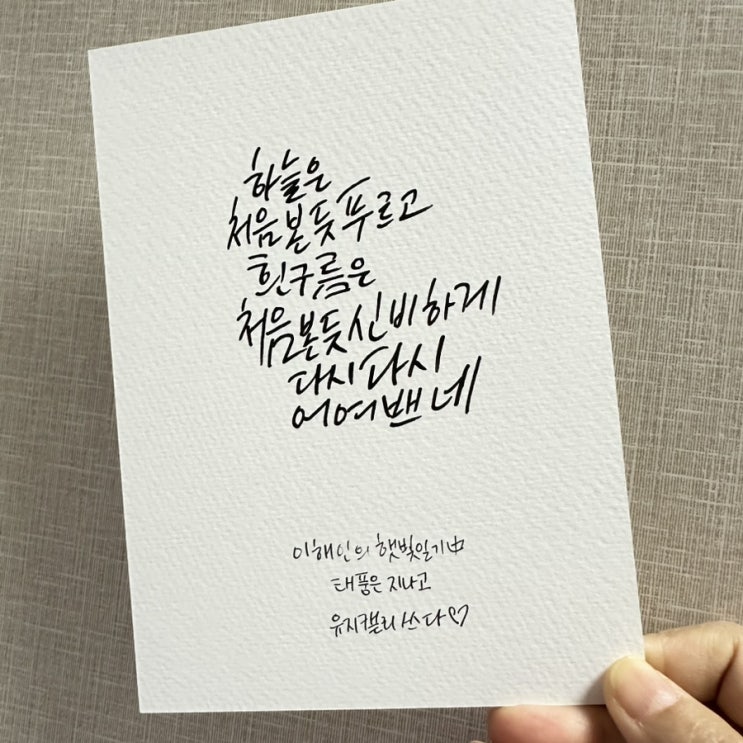 하늘은
처음 본 듯 푸르고
흰구름은
처음 본 듯 신비하게
다시 다시
어여쁘네
이해인의 햇빛일기中
태풍은 지나고
유지캘리 쓰다♡